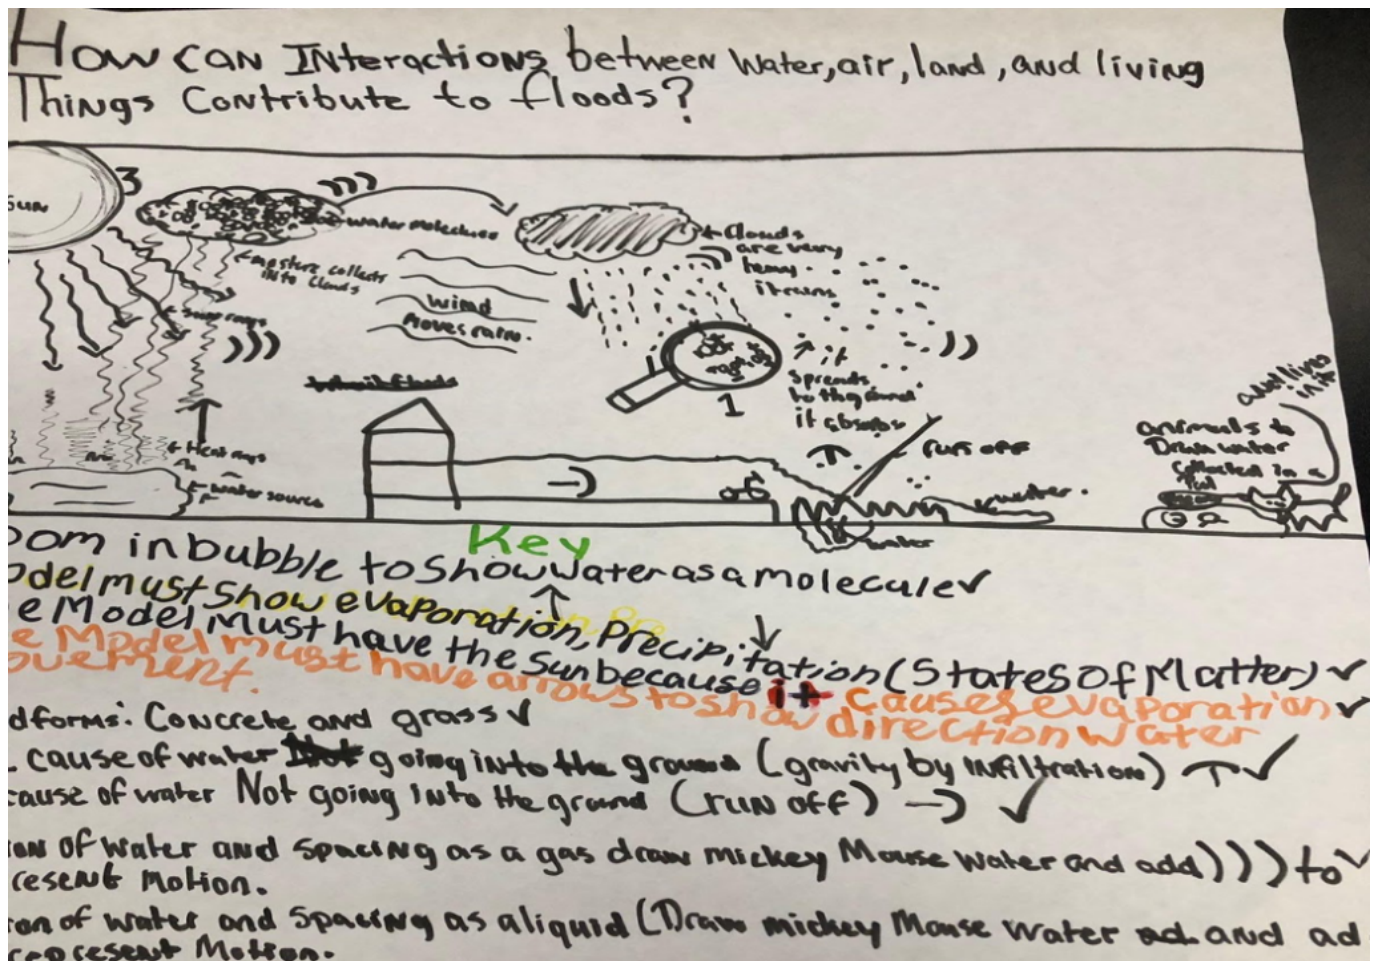 How can Interactions between water, air, land, and living
Things Contribute to floods?
Sun
3
water molecules
moisture collects
into clouds
Wind
Moves rain.
Clouds
are very
heavy.
it rains
it
spreads
to the ground
it absorbs
1
Solar rays
Heat rays
water source
run off
water.
water
animals to
Drain water
collected in a
and lives
in it
Key
oom in bubble to show water as a molecule ✓
odel must show evaporation, Precipitation (States of Matter) ✓
e Model Must have the Sun because it causes evaporation ✓
e Model must have arrows to show direction water
ovement.
dforms: Concrete and grass ✓
cause of water Not going into the ground (gravity by infiltration) ↑ ✓
cause of water Not going into the ground (run off) → ✓
on of water and spacing as a gas draw mickey Mouse water and add ))) to ✓
resent Motion.
on of water and spacing as a liquid (Draw mickey Mouse water and ad
represent Motion.